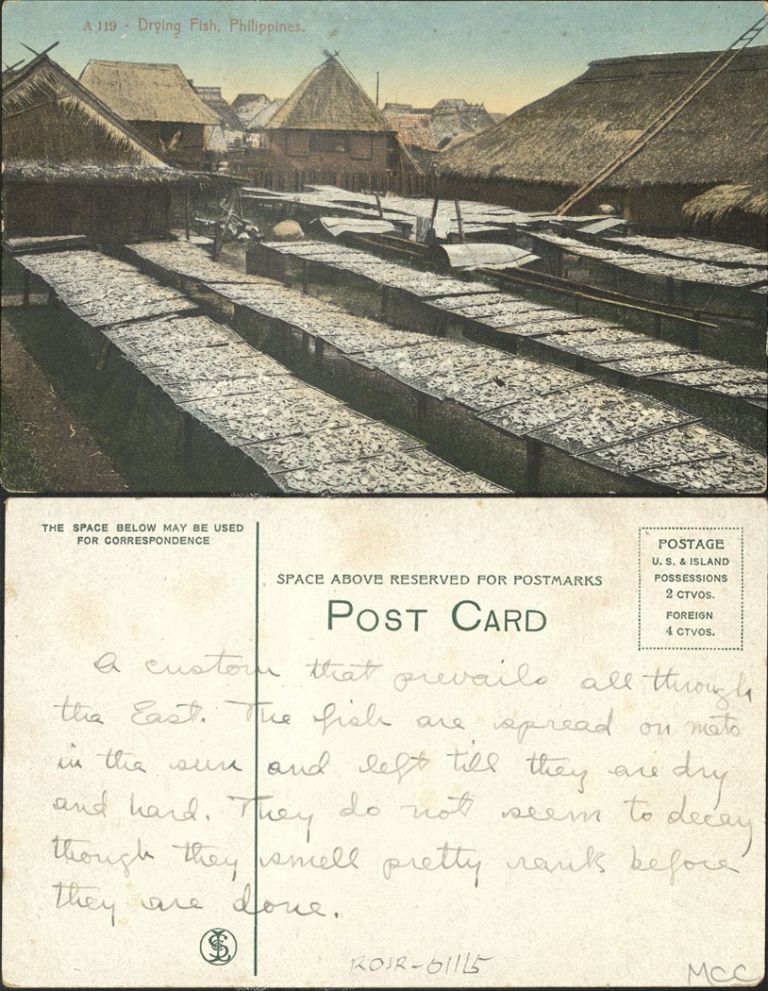 A 119 - Drying Fish, Philippines.
THE SPACE BELOW MAY BE USED
FOR CORRESPONDENCE
SPACE ABOVE RESERVED FOR POSTMARKS
POST CARD
POSTAGE
U. S. & ISLAND
POSSESSIONS
2 CTVOS.
FOREIGN
4 CTVOS.
A custom that prevails all through
the East. The fish are spread on mats
in the sun and left till they are dry
and hard. They do not seem to decay
though they smell pretty rank before
they are done.
ROJR-01115
MCC